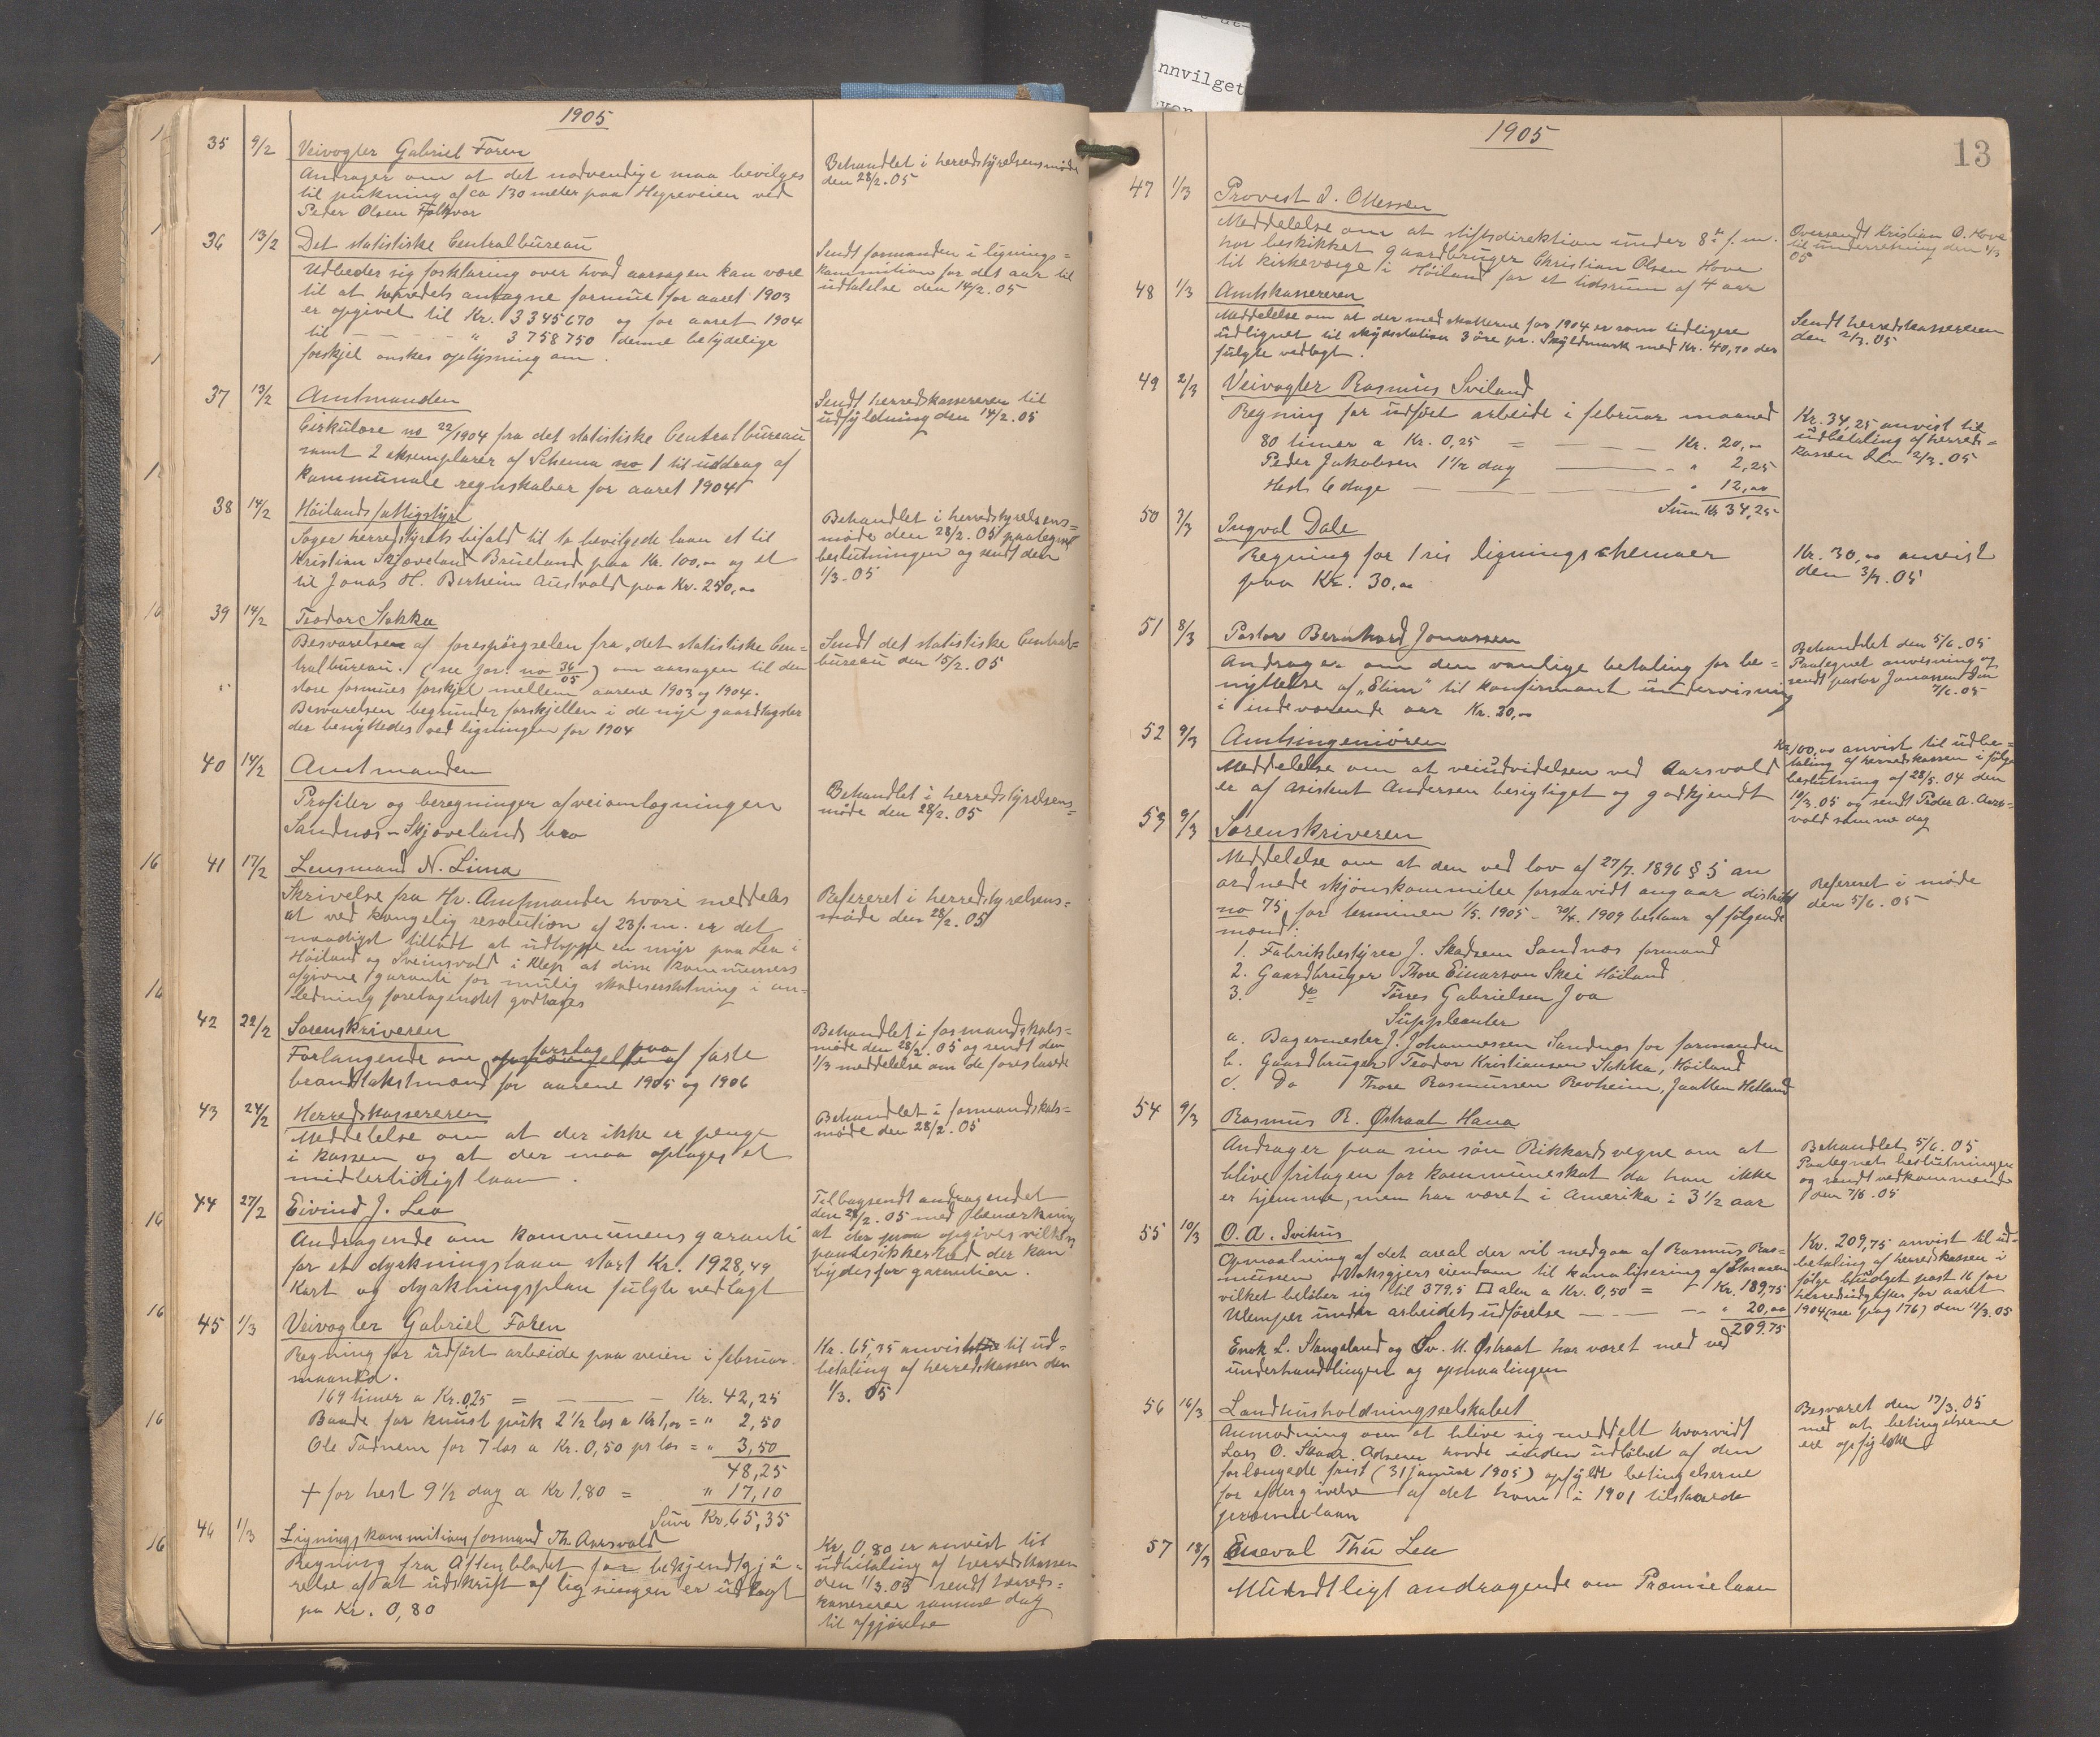 nnvilget
1905
35 9/2 Veivogter Gabriel Foren
Andrager om at det nødvendige maa bevilges
til pukning af ca 130 meter paa Hegreveien ved
Peder Olsen Folkvor
Behandlet i herredstyrelsens møde
den 28/2. 05
36 13/2 Det statistiske Centralbureau
Udbeder sig forklaring over hvad aarsagen kan være
til at herredets antagne formue for aaret 1903
er opgivet til Kr. 3345670 og for aaret 1904
til — — " 3758750 denne betydelige
forskjel ønskes oplysning om.
Sendt formanden i lignings=
kommition for det aar til
udtalelse den 14/2. 05
37 13/2 Amtmanden
Cirkulære no 22/1904 fra det statistiske Centralbureau
samt 2 eksemplarer af Schema no 1 til uddrag af
kommunale regnskaber for aaret 1904
Sendt herredskassereren til
udfyldning den 14/2. 05
38 14/2 Høilands fattigstyre
Søger herredstyrets bifald til to bevilgede laan et til
Kristian Skjæveland Brueland paa Kr. 100,00 og et
til Jonas H. Berheim Austvold paa Kr. 250,00
Behandlet i herredstyrelsens=
møde den 28/2. 05 paategnet
beslutningen og sendt den
1/3. 05
39 14/2 Teodor Stokka
Besvarelsen af forespørgselen fra det statistiske Cen=
tralbureau. (se jor. no 36/05) om aarsagen til den
store formues forskjel mellem aarene 1903 og 1904.
Besvarelsen begrunder forskjellen i de nye gaardtagster
der benyttedes ved ligningen for 1904
Sendt det statistiske Central=
bureau den 15/2. 05
40 14/2 Amtmanden
Profiler og beregninger af veiomlægningen
Sandnæs – Skjævelands bro
Behandlet i herredstyrelsens=
møde den 28/2. 05
41 17/2 Lensmand N. Lima
Skrivelse fra Hr. Amtmanden hvori meddeles
at ved kongelig resolution af 23 f. m. er det
naadigst tilladt at udtappe en myr paa Lea i
Høiland og Sveinsvold i Klep at disse kommuners
afgivne garanti for mulig skadeserstatning i an=
ledning foretagendet godtages
Refereret i herredstyrelsens=
møde den 28/2. 05
42 22/2 Sorenskriveren
Forlangende om forslag paa faste
brandtakstmænd for aarene 1905 og 1906
Behandlet i formandskabs=
møde den 28/2. 05 og sendt den
1/3 meddelelse om de foreslaaede
43 24/2 Herredskassereren
Meddelelse om at der ikke er penge
i kassen og at der maa optages et
midlertidigt laan.
Behandlet i formandskabs=
møde den 28/2. 05
44 27/2 Eivind J. Lea
Andragende om kommunens garanti
for et dyrkningslaan stort Kr. 1928,49
Kart og dyrkningsplan fulgte vedlagt
Tilbagsendt andragendet
den 28/2. 05 med bemærkning
at der maa opgives vilken
pantesikkerhed der kan
bydes for garantien.
45 1/3 Veivogter Gabriel Foren
Regning for udført arbeide paa veien i februar
maaned.
169 timer a Kr. 0,25 = — — Kr. 42,25
Baade for knust puk 2 1/2 læs a Kr 1,00 = " 2,50
Ole Tadnem for 7 læs a Kr. 0,50 pr læs = " 3,50
48,25
+ for hest 9 1/2 dag a Kr 1,80 = " 17,10
Sum Kr. 65,35
Kr. 65,35 anvist til ud=
betaling af herredskassen den
1/3. 05
46 1/3 Ligningskommitions formand Th. Aarsvold
Regning fra Aftenbladet for bekjendtgjø=
relse af at udskrift af ligningen er udlagt
paa Kr. 0,80
Kr. 0,80 er anvist til
udbetaling af herredskassen
den 1/3. 05 sendt herreds=
kassereren samme dag
til afgjørelse
1905
13
47 1/3 Provest I. Ollessen
Meddelelse om at stiftsdirektion under 8de f. m.
har beskikket gaardbruger Christian Olsen Hove
til kirkeværge i Høiland for et tidsrum af 4 aar
Oversendt Kristian O. Hove
til underretning den 2/3
05
48 1/3 Amtskassereren
Meddelelse om at der med skatterne for 1904 er som tidligere
udlignet til skydsstation 3 øre pr. Skyldmark med Kr. 40,70 der
fulgte vedlagt.
Sendt herredskassereren
den 2/3. 05
49 2/3 Veivogter Rasmus Sviland
Regning for udført arbeide i februar maaned
80 timer a Kr. 0,25 = — — Kr. 20,00
Peder Jakobsen 1 1/2 dag — — " 2,25
Hest 6 dage — — " 12,00
Sum Kr 34,25
Kr. 34,25 anvist til
udbetaling af herreds=
kassen den 2/3. 05
50 3/3 Ingval Dale
Regning for 1 ris ligningsskemaer
paa Kr. 30,00
Kr. 30,00 anvist
den 3/3. 05
51 8/3 Pastor Bernhard Jonassen
Andrager om den vanlige betaling for be=
nyttelse af „Elim" til konfirmant undervisning
i indeværende aar Kr. 30,00
Behandlet den 5/6. 05
Paategnet anvisning og
sendt pastor Jonassen den
7/6. 05
52 9/3 Amtsingeniøren
Meddelelse om at veiudvidelsen ved Aarsvold
er af asistent Andersen besigtiget og godkjendt
Kr 100,00 anvist til udbe=
taling af herredskassen i følge
beslutning af 28/5. 04 den
10/3. 05 og sendt Peder A. Aars=
vold samme dag
53 9/3 Sorenskriveren
Meddelelse om at den ved lov af 27/7. 1896 § 5 an
ordnede skjønskommitee forsaavidt angaar distrikt
no 75 for terminen 1/5. 1905 – 30/4. 1909 bestaar af følgende
mænd:
1. Fabrikbestyrer J. Skadsem Sandnæs formand
2. Gaardbruger Thore Einarson Skei Høiland
3. do Tørres Gabrielsen Joa
Suppleanter
a. Bagermester J. Johannessen Sandnæs for formanden
b. Gaardbruger Teodor Kristiansen Stokka, Høiland
c. Do Thore Rasmussen Revheim, Jaatten Hetland
Refereret i møde
den 5/6. 05
54 9/3 Rasmus R. Østraat Hana
Andrager paa sin søn Rikkards vegne om at
blive fritagen for kommuneskat da han ikke
er hjemme, men har været i Amerika i 3 1/2 aar
Behandlet 5/6. 05
Paategnet beslutningen
og sendt vedkommende
den 7/6. 05
55 10/3 O. A. Svihus
Opmaalning af det areal der vil medgaa af Rasmus Ras=
mussen Vaksgjers eiendom til kanalisering af Storaaen
vilket beløber sig til 379,5 □ alen a Kr. 0,50 = Kr. 189,75
Ulemper under arbeidets udførelse — — " 20,00
209.75
Enok L. Stangeland og Sv. M. Østraat har været med ved
underhandlingen og opmaalingen
Kr. 209,75 anvist til ud=
betaling af herredskassen i
følge budget post 16 for
herredsudgifter for aaret
1904 (see pag 176) den 11/3. 05
56 16/3 Landhusholdningsselskabet
Anmodning om at blive sig meddelt hvorvidt
Lars O. Skaar Adseren havde inden udløbet af den
forlængede frist (31 januar 1905) opfyldt betingelserne
for eftergivelse af det ham i 1901 tilstaaede
præmielaan
Besvaret den 17/3. 05
med at betingelserne
ere opfyldte
57 18/3 Eneval Thu Lea
Mundtligt andragende om Præmielaan